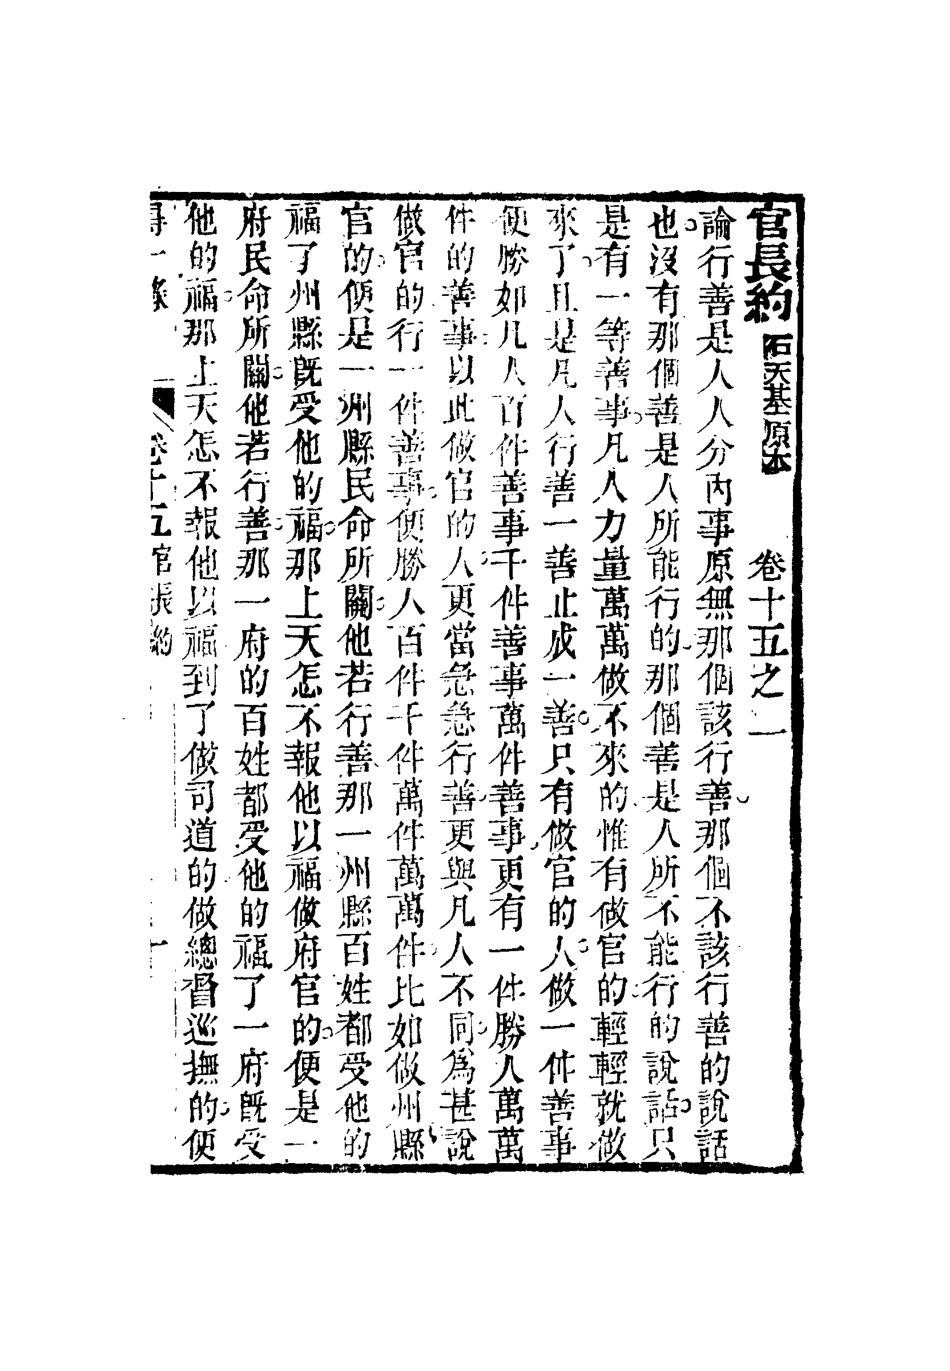 官長約 石天基原本 卷十五之一
論行善是人人分內事原無那個該行善那個不該行善的說話
也沒有那個善是人所能行的那個善是人所不能行的說話只
是有一等善事凡人力量萬萬做不來的惟有做官的輕輕就做
來了且是凡人行善一善止成一善只有做官的人做一件善事
便勝如凡人百件善事千件善事萬件善事更有一件勝人萬萬
件的善事以此做官的人更當急急行善更與凡人不同為甚說
做官的行一件善事便勝人百件千件萬件萬萬件比如做州縣
官的便是一州縣民命所關他若行善那一州縣百姓都受他的
福了州縣既受他的福那上天怎不報他以福做府官的便是一
府民命所關他若行善那一府的百姓都受他的福了一府既受
他的福那上天怎不報他以福到了做司道的做總督巡撫的便
得一錄 卷十五官長約